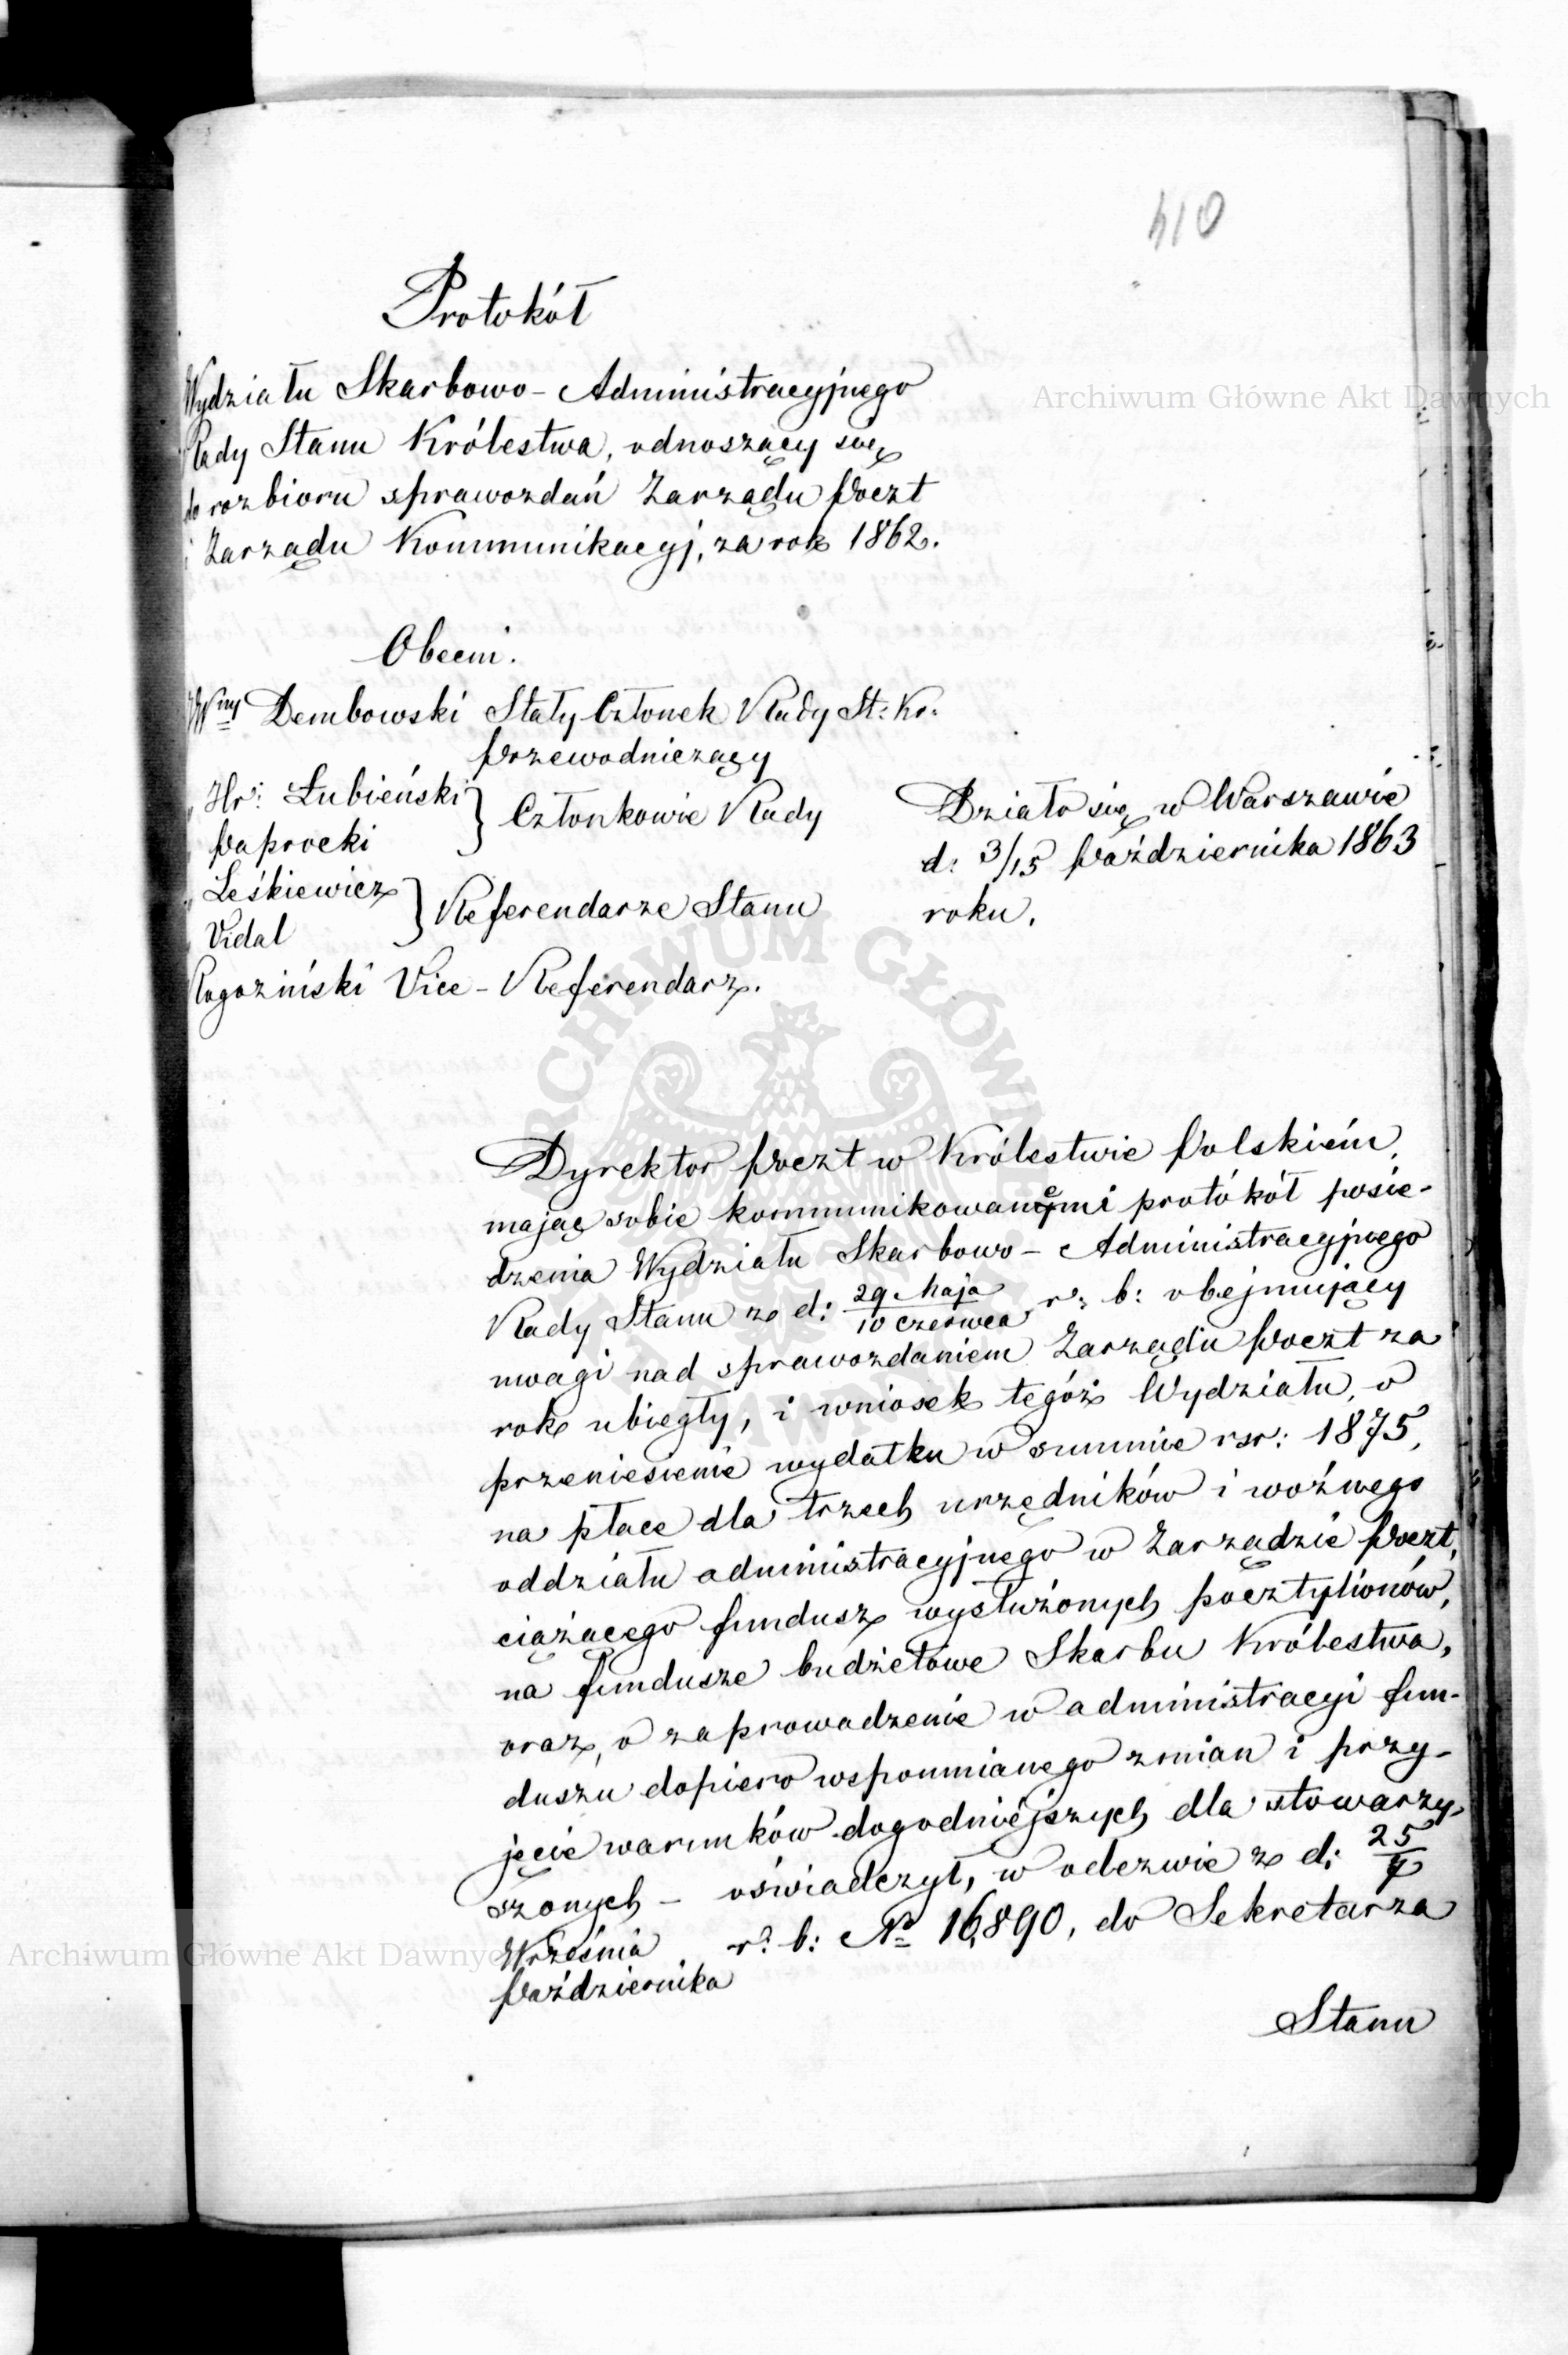 410
Protokół
Wydziału Skarbowo-Administracyjnego
Rady Stanu Królestwa, odnoszący się
do rozbioru sprawozdań Zarządu Poczt
i Zarządu Kommunikacyj, za rok 1862.
Obecni.
Wny Dembowski Stały Członek Rady St: Kr:
Przewodniczący
„ Hr: Łubieński } Członkowie Rady
„ Paprocki
„ Leśkiewicz } Referendarze Stanu
„ Vidal
Rogoziński Vice-Referendarz.
Działo się w Warszawie
d: 3/15 Października 1863
roku.
Dyrektor Poczt w Królestwie Polskiém,
mając sobie kommunikowanemi protókół posie-
dzenia Wydziału Skarbowo-Administracyjnego
Rady Stanu z d: 29 Maja / 10 Czerwca r: b: obejmujący
uwagi nad sprawozdaniem Zarządu Poczt za
rok ubiegły, i wniosek tegóż Wydziału, o
przeniesienie wydatku w summie rsr: 1875,
na płace dla trzech urzędników i woźnego
oddziału administracyjnego w Zarządzie Poczt,
ciążącego fundusz wysłużonych pocztylionów,
na fundusze budżetowe Skarbu Królestwa,
oraz, o zaprowadzenie w administracyi fun-
duszu dopiero wspomnianego zmian i przy-
jęcie warunków dogodniejszych dla stowarzy-
szonych – oświadczył, w odezwie z d: 25/7
Września / Października r: b: № 16,890, do Sekretarza
Stanu
Archiwum Główne Akt Dawnych
Archiwum Główne Akt Dawnych
ARCHIWUM GŁÓWNE AKT DAWNYCH